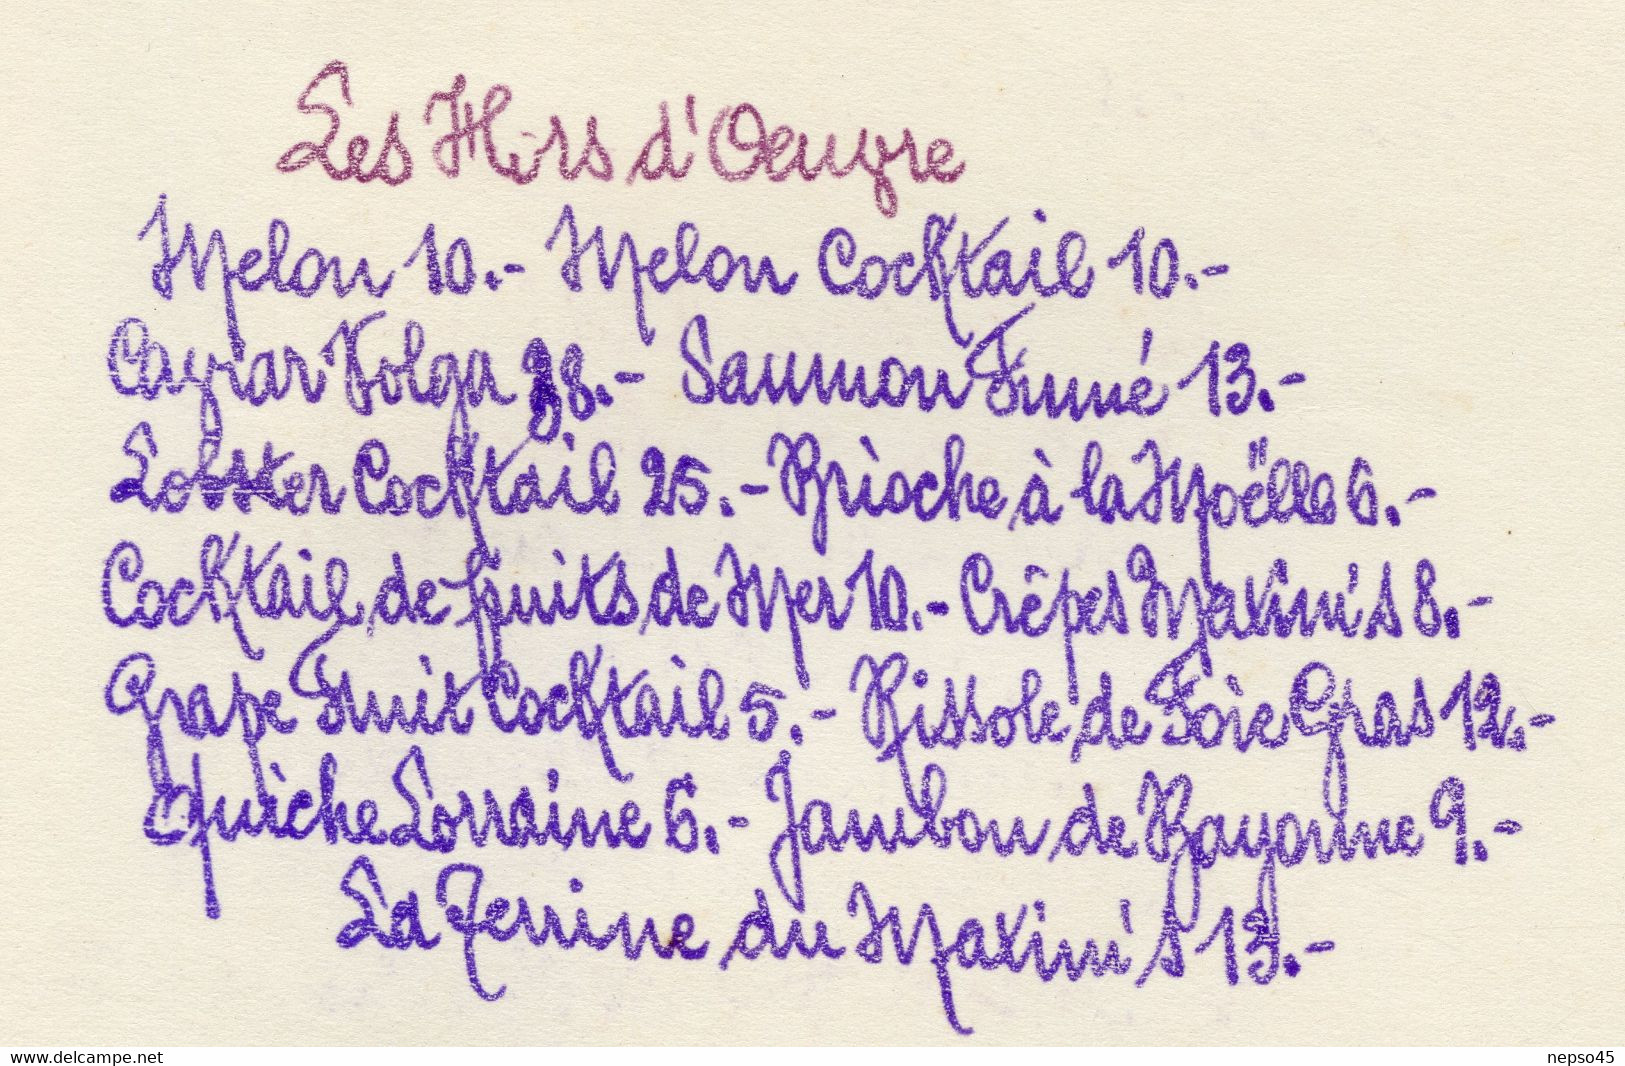 Les Hors d'Oeuvre
Melon 10.- Melon Cocktail 10.-
Caviar Volga 38.- Saumon Fumé 13.-
Lobster Cocktail 25.- Brioche à la Moëlle 6.-
Cocktail de fruits de Mer 10.- Crêpes Maxim's 8.-
Grape Fruit Cocktail 5.- Rissole de Foie Gras 12.-
Quiche Lorraine 6.- Jambon de Bayonne 9.-
La Terrine du Maxim's 13.-
www.delcampe.net
nepso45